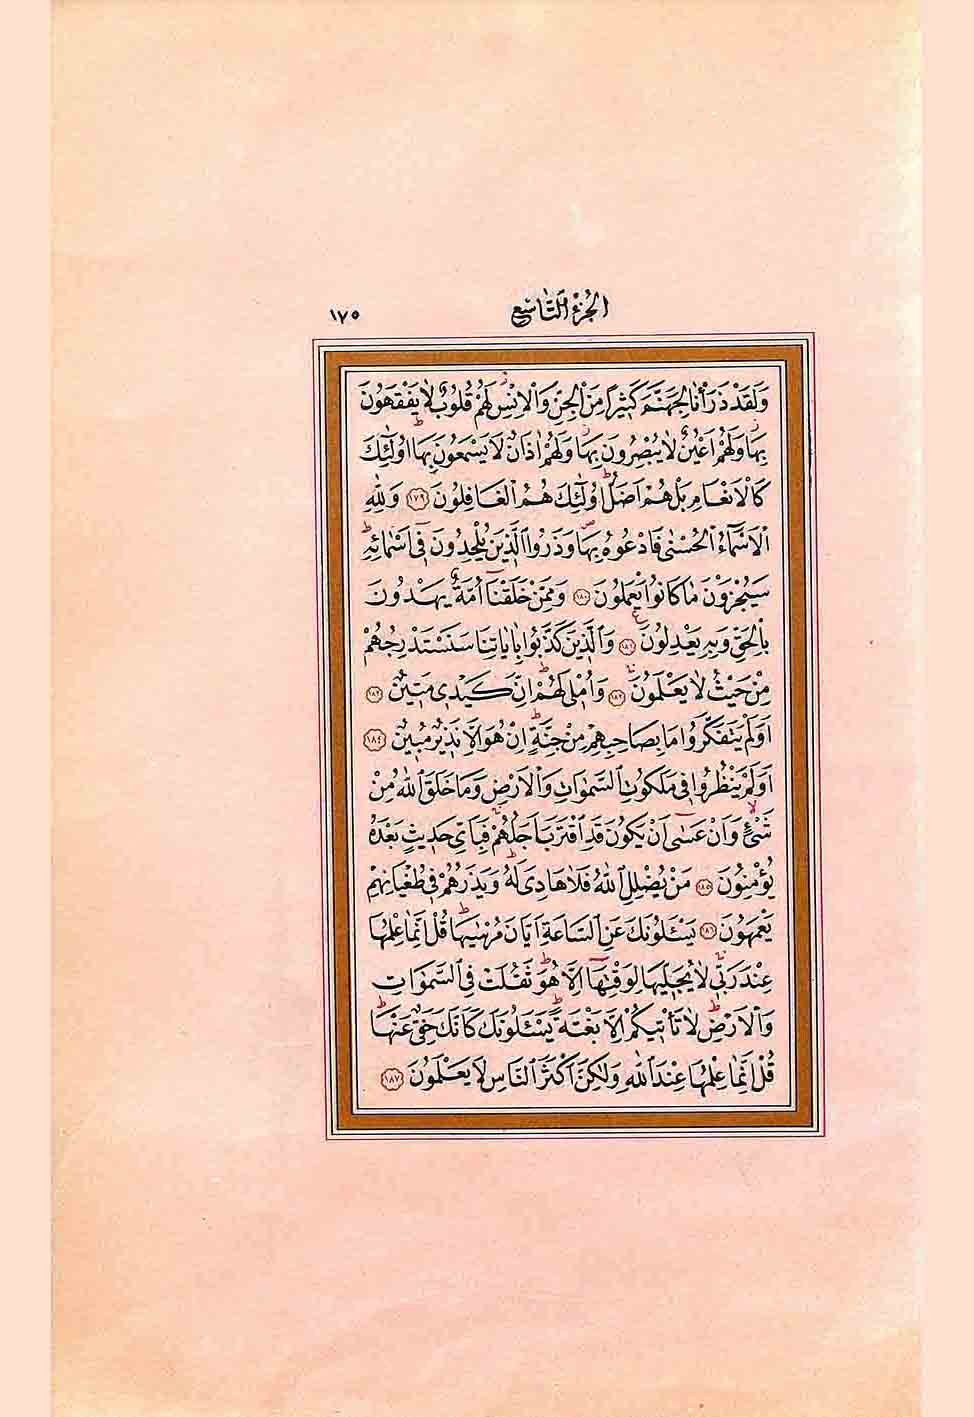 الجزء التاسع ١٧٥
وَلَقَدْ ذَرَأْنَا لِجَهَنَّمَ كَثِيرًا مِنَ الْجِنِّ وَالْاِنْسِ لَهُمْ قُلُوبٌ لَا يَفْقَهُونَ
بِهَا وَلَهُمْ اَعْيُنٌ لَا يُبْصِرُونَ بِهَا وَلَهُمْ اٰذَانٌ لَا يَسْمَعُونَ بِهَا اُولٰٓئِكَ
كَالْاَنْعَامِ بَلْ هُمْ اَضَلُّ اُولٰٓئِكَ هُمُ الْغَافِلُونَ ١٧٩ وَلِلّٰهِ
الْاَسْمَٓاءُ الْحُسْنٰى فَادْعُوهُ بِهَا وَذَرُوا الَّذِينَ يُلْحِدُونَ فِٓى اَسْمَٓائِهِ
سَيُجْزَوْنَ مَا كَانُوا يَعْمَلُونَ ١٨٠ وَمِمَّنْ خَلَقْنَٓا اُمَّةٌ يَهْدُونَ
بِالْحَقِّ وَبِهِ يَعْدِلُونَ ١٨١ وَالَّذِينَ كَذَّبُوا بِاٰيَاتِنَا سَنَسْتَدْرِجُهُمْ
مِنْ حَيْثُ لَا يَعْلَمُونَ ١٨٢ وَاُمْلِى لَهُمْ اِنَّ كَيْدِى مَتِينٌ ١٨٣
اَوَلَمْ يَتَفَكَّرُوا مَا بِصَاحِبِهِمْ مِنْ جِنَّةٍ اِنْ هُوَ اِلَّا نَذِيرٌ مُبِينٌ ١٨٤
اَوَلَمْ يَنْظُرُوا فِى مَلَكُوتِ السَّمٰوَاتِ وَالْاَرْضِ وَمَا خَلَقَ اللّٰهُ مِنْ
شَىْءٍ وَاَنْ عَسٰٓى اَنْ يَكُونَ قَدِ اقْتَرَبَ اَجَلُهُمْ فَبِاَىِّ حَدِيثٍ بَعْدَهُ
يُؤْمِنُونَ ١٨٥ مَنْ يُضْلِلِ اللّٰهُ فَلَا هَادِىَ لَهُ وَيَذَرُهُمْ فِى طُغْيَانِهِمْ
يَعْمَهُونَ ١٨٦ يَسْـَٔلُونَكَ عَنِ السَّاعَةِ اَيَّانَ مُرْسٰيهَا قُلْ اِنَّمَا عِلْمُهَا
عِنْدَ رَبِّى لَا يُجَلِّيهَا لِوَقْتِهَٓا اِلَّا هُوَ ثَقُلَتْ فِى السَّمٰوَاتِ
وَالْاَرْضِ لَا تَأْتِيكُمْ اِلَّا بَغْتَةً يَسْـَٔلُونَكَ كَاَنَّكَ حَفِىٌّ عَنْهَا
قُلْ اِنَّمَا عِلْمُهَا عِنْدَ اللّٰهِ وَلٰكِنَّ اَكْثَرَ النَّاسِ لَا يَعْلَمُونَ ١٨٧